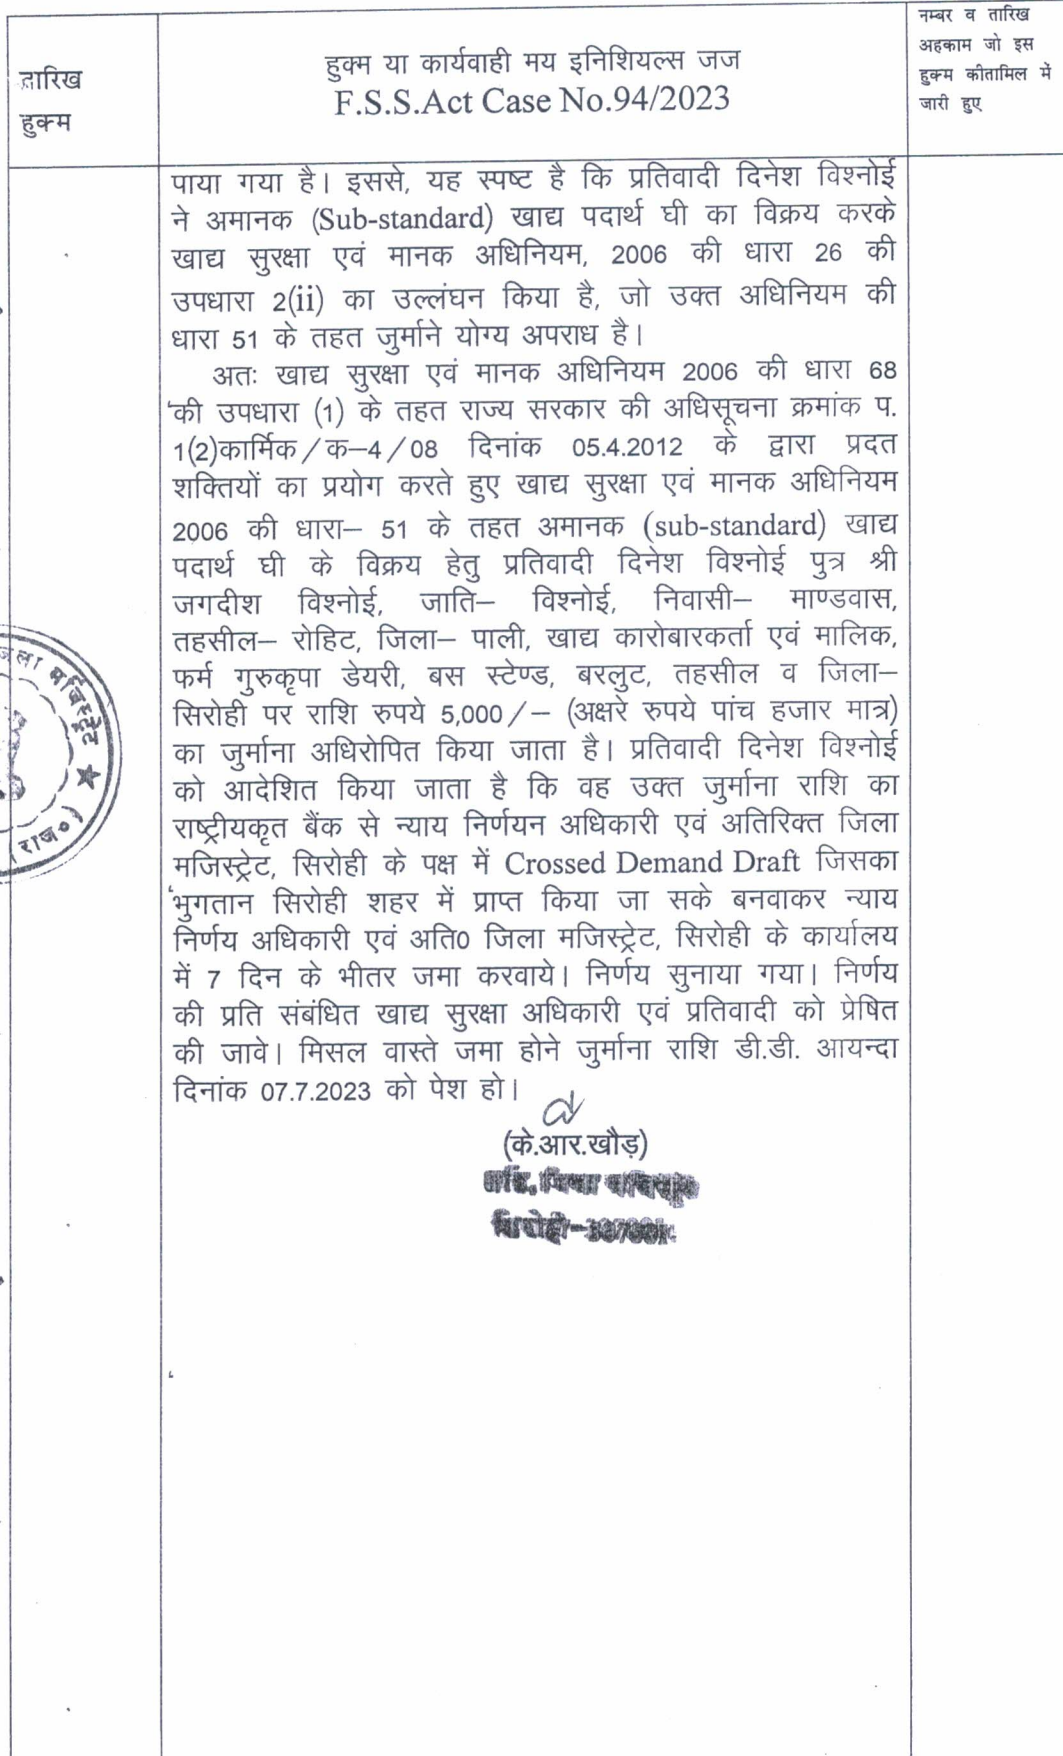 तारिख
हुक्म
हुक्म या कार्यवाही मय इनिशियल्स जज
F.S.S.Act Case No.94/2023
नम्बर व तारिख
अहकाम जो इस
हुक्म कीतामिल में
जारी हुए
पाया गया है। इससे, यह स्पष्ट है कि प्रतिवादी दिनेश विश्नोई
ने अमानक (Sub-standard) खाद्य पदार्थ घी का विक्रय करके
खाद्य सुरक्षा एवं मानक अधिनियम, 2006 की धारा 26 की
उपधारा 2(ii) का उल्लंघन किया है, जो उक्त अधिनियम की
धारा 51 के तहत जुर्माने योग्य अपराध है।
अतः खाद्य सुरक्षा एवं मानक अधिनियम 2006 की धारा 68
की उपधारा (1) के तहत राज्य सरकार की अधिसूचना क्रमांक प.
1(2)कार्मिक/क–4/08 दिनांक 05.4.2012 के द्वारा प्रदत
शक्तियों का प्रयोग करते हुए खाद्य सुरक्षा एवं मानक अधिनियम
2006 की धारा– 51 के तहत अमानक (sub-standard) खाद्य
पदार्थ घी के विक्रय हेतु प्रतिवादी दिनेश विश्नोई पुत्र श्री
जगदीश विश्नोई, जाति– विश्नोई, निवासी– माण्डवास,
तहसील– रोहिट, जिला– पाली, खाद्य कारोबारकर्ता एवं मालिक,
फर्म गुरुकृपा डेयरी, बस स्टेण्ड, बरलुट, तहसील व जिला–
सिरोही पर राशि रुपये 5,000/– (अक्षरे रुपये पांच हजार मात्र)
का जुर्माना अधिरोपित किया जाता है। प्रतिवादी दिनेश विश्नोई
को आदेशित किया जाता है कि वह उक्त जुर्माना राशि का
राष्ट्रीयकृत बैंक से न्याय निर्णयन अधिकारी एवं अतिरिक्त जिला
मजिस्ट्रेट, सिरोही के पक्ष में Crossed Demand Draft जिसका
भुगतान सिरोही शहर में प्राप्त किया जा सके बनवाकर न्याय
निर्णय अधिकारी एवं अति0 जिला मजिस्ट्रेट, सिरोही के कार्यालय
में 7 दिन के भीतर जमा करवाये। निर्णय सुनाया गया। निर्णय
की प्रति संबंधित खाद्य सुरक्षा अधिकारी एवं प्रतिवादी को प्रेषित
की जावे। मिसल वास्ते जमा होने जुर्माना राशि डी.डी. आयन्दा
दिनांक 07.7.2023 को पेश हो।
(के.आर.खौड़)
जिला मजिस्ट्रेट ★
(राज०)